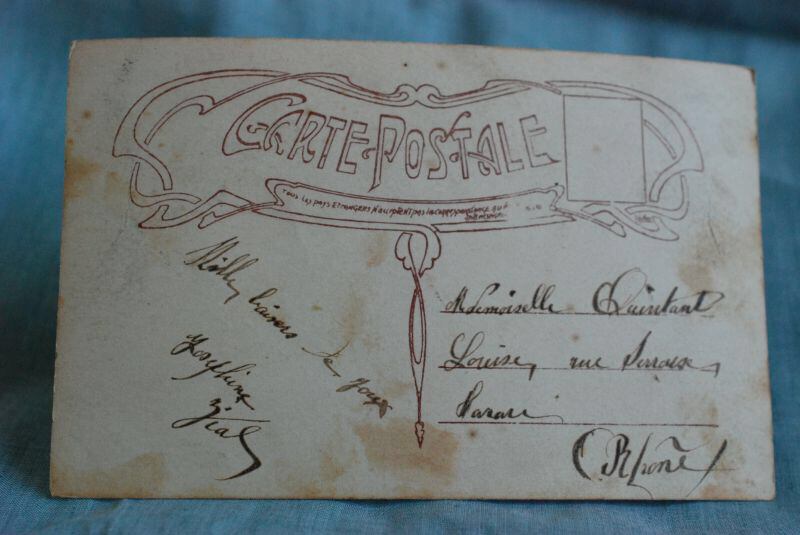 CARTE-POSTALE
TOUS LES PAYS ETRANGERS N'ACCEPTENT PAS LA CORRESPONDANCE AU
Mille baisers de
Josephine
Vial
Mademoiselle Quintant
Louise, rue
Tarare
(Rhone)